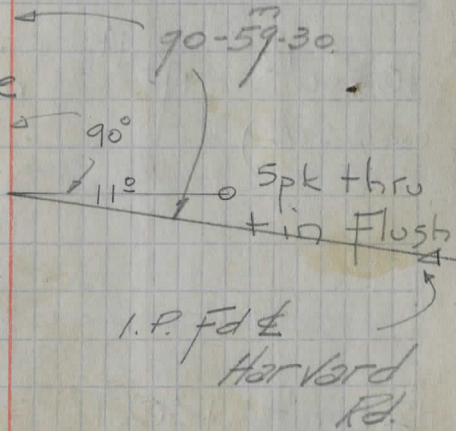 90-59-30
m
e
90°
11º
Spk thru
tin Flush
I.P. Fd ℄
Harvard
Rd.